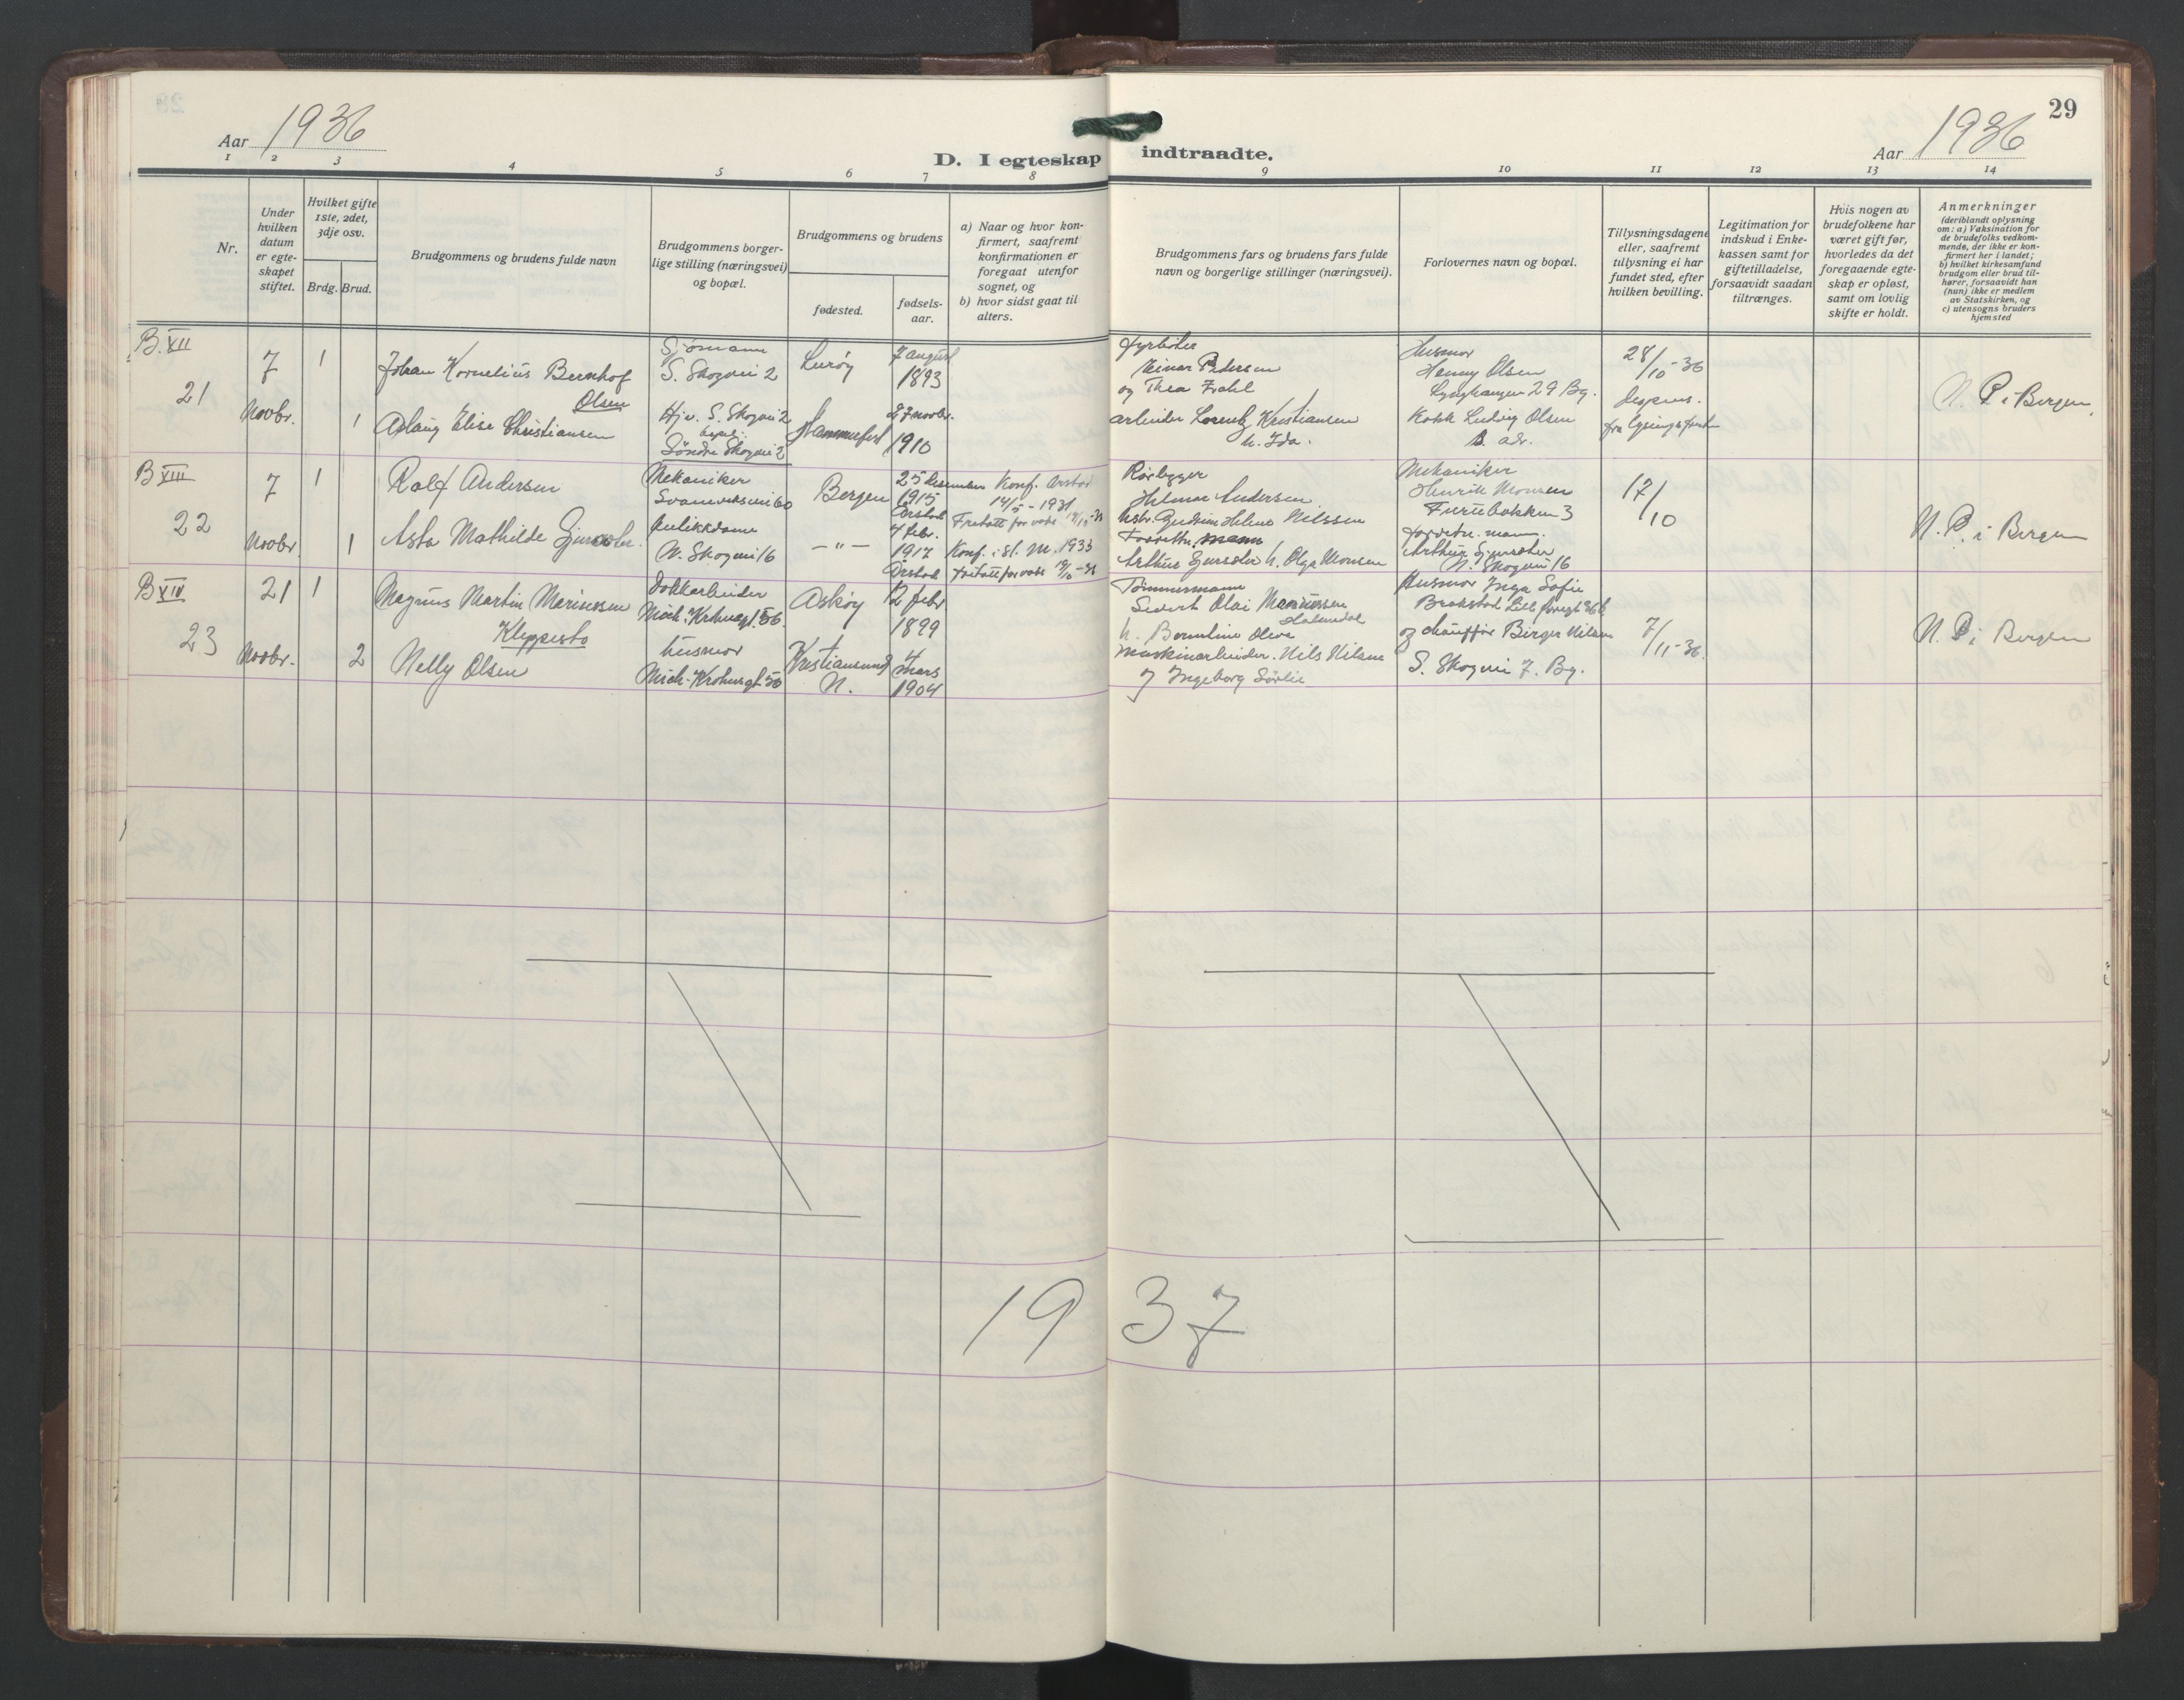 29
Aar 1936
D. I egteskap indtraadte.
Aar 1936
1 2 3 4 5 6 7 8 9 10 11 12 13 14
Nr.
Under hvilken datum er egte-skapet stiftet.
Hvilket gifte 1ste, 2det, 3dje osv.
Brdg. Brud.
Brudgommens og brudens fulde navn
Brudgommens borger-lige stilling (næringsvei) og bopæl.
Brudgommens og brudens
fødested.
fødsels-aar.
a) Naar og hvor kon-firmert, saafremt konfirmationen er foregaat utenfor sognet, og
b) hvor sidst gaat til alters.
Brudgommens fars og brudens fars fulde navn og borgerlige stillinger (næringsvei).
Forlovernes navn og bopæl.
Tillysningsdagene eller, saafremt tillysning ei har fundet sted, efter hvilken bevilling.
Legitimation for indskud i Enke-kassen samt for giftetilladelse, forsaavidt saadan tiltrænges.
Hvis nogen av brudefolkene har været gift før, hvorledes da det foregaaende egte-skap er opløst, samt om lovlig skifte er holdt.
Anmerkninger
(deriblandt oplysning om: a) Vaksination for de brudefolks vedkom-mende, der ikke er kon-firmert her i landet;
b) hvilket kirkesamfund brudgom eller brud til-hører, forsaavidt han (hun) ikke er medlem av Statskirken, og
c) utensogns bruders hjemsted
B. XII
21
7
Novbr.
1
Johan Kornelius Bernhof
Olsen
Sjømann
S. Skogvei 2
Lurøy
7 august
1893
Fyrbøter
Einar Pedersen
og Thea Zahl
Husmor
Henny Olsen
Lynghaugen 29 Bg.
28/10-36
dispens.
N. P. i Bergen
1
Aslaug Elise Christiansen
Hj.v. S. Skogvei 2
Søndre Skogvei 2
Hammerfest
27 novbr.
1910
arbeider Lorentz Kristiansen
h. Ida.
Kokk Ludvig Olsen
s. adr.
B XIII
22
7
Novbr.
1
Ralf Andersen
Mekaniker
Bergen
25 desember
1915
Årstad
Konf. Årstad
14/5 - 1931
Rørlegger
Hilmar Andersen
Mekaniker
Henrik Monsen
Furubakken 3
17/10
N. P. i Bergen
1
Asta Mathilde
Butikkdame
N. Skogvei 16
— " —
4 febr.
1917
Årstad
Konf. i St. M. 1933
mann
Arthur
h. Olga Monsen
N. Skogvei 16
B XIV
23
21
Novbr.
1
Magnus Martin Marinussen
Kleppestø
Dokkarbeider
Mich. Krohnsgt. 56.
Askøy
12 febr
1899
Tømmermann
Sivert Olai Marinussen
h. Berntine Oline
Husmor Inga Sofie
Brakstad
og chauffør Birger Nilsen
S. Skogvei 7. Bg.
7/11-36
N. P. i Bergen
2
Nelly Olsen
husmor
Mich. Krohnsgt. 56
Kristiansund
N.
4
mars
1904
Maskinarbeider. Nils Nilsen
og Ingeborg Sørlie
1937